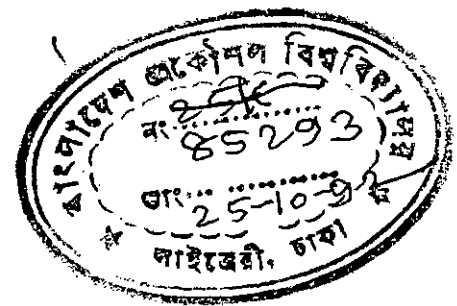 বাংলাদেশ প্রকৌশল বিশ্ববিদ্যালয়
নং
85293
তাং 25-10-9
লাইব্রেরী, ঢাকা